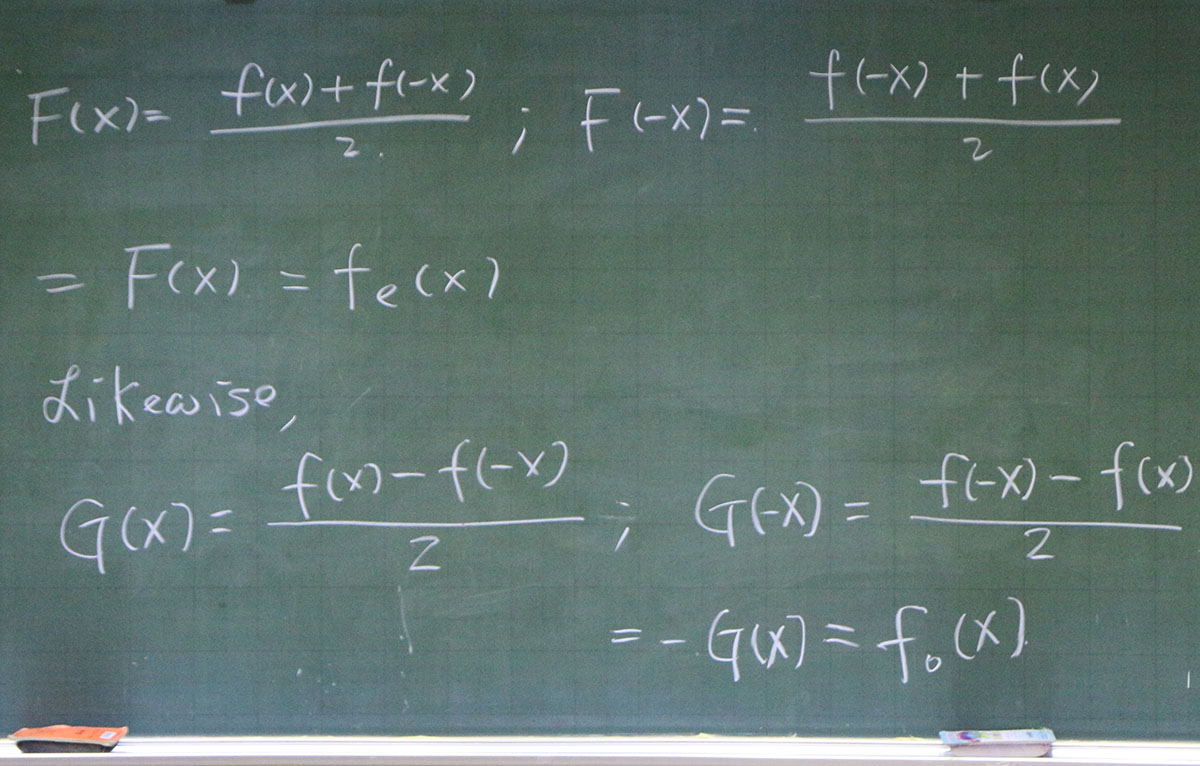 F(x) = \frac{f(x) + f(-x)}{2} ; F(-x) = \frac{f(-x) + f(x)}{2}
= F(x) = f_e(x)
Likewise,
G(x) = \frac{f(x) - f(-x)}{2} ; G(-x) = \frac{f(-x) - f(x)}{2}
= -G(x) = f_o(x)